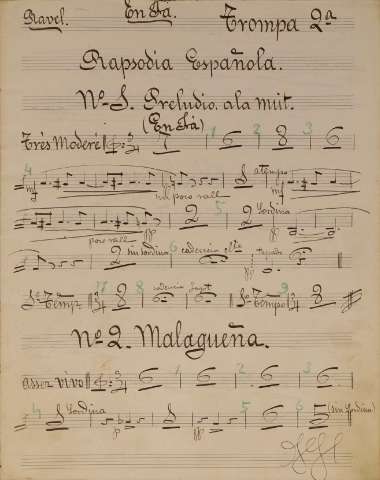 Ravel. En Fá. Trompa 2ª
Rapsodia Española.
Nº 1. Preludio a la nuit.
(En Fá)
Très Moderé 7 1 6 2 8 3 6
4 mf un poco rall 1 a tempo mf
poco rall pp 2 5 2 Sordina pp
2 sin sordina 6 cadencia tapada pp
1º Tempo 7 8 8 cadencia Fagot 1º Tempo 9 8
Nº 2. Malagueña.
assez vivo 3 4 6 1 6 2 6 3 6
4 1 Sordina 1 pp 5 6 6 5 (sin Sordina)